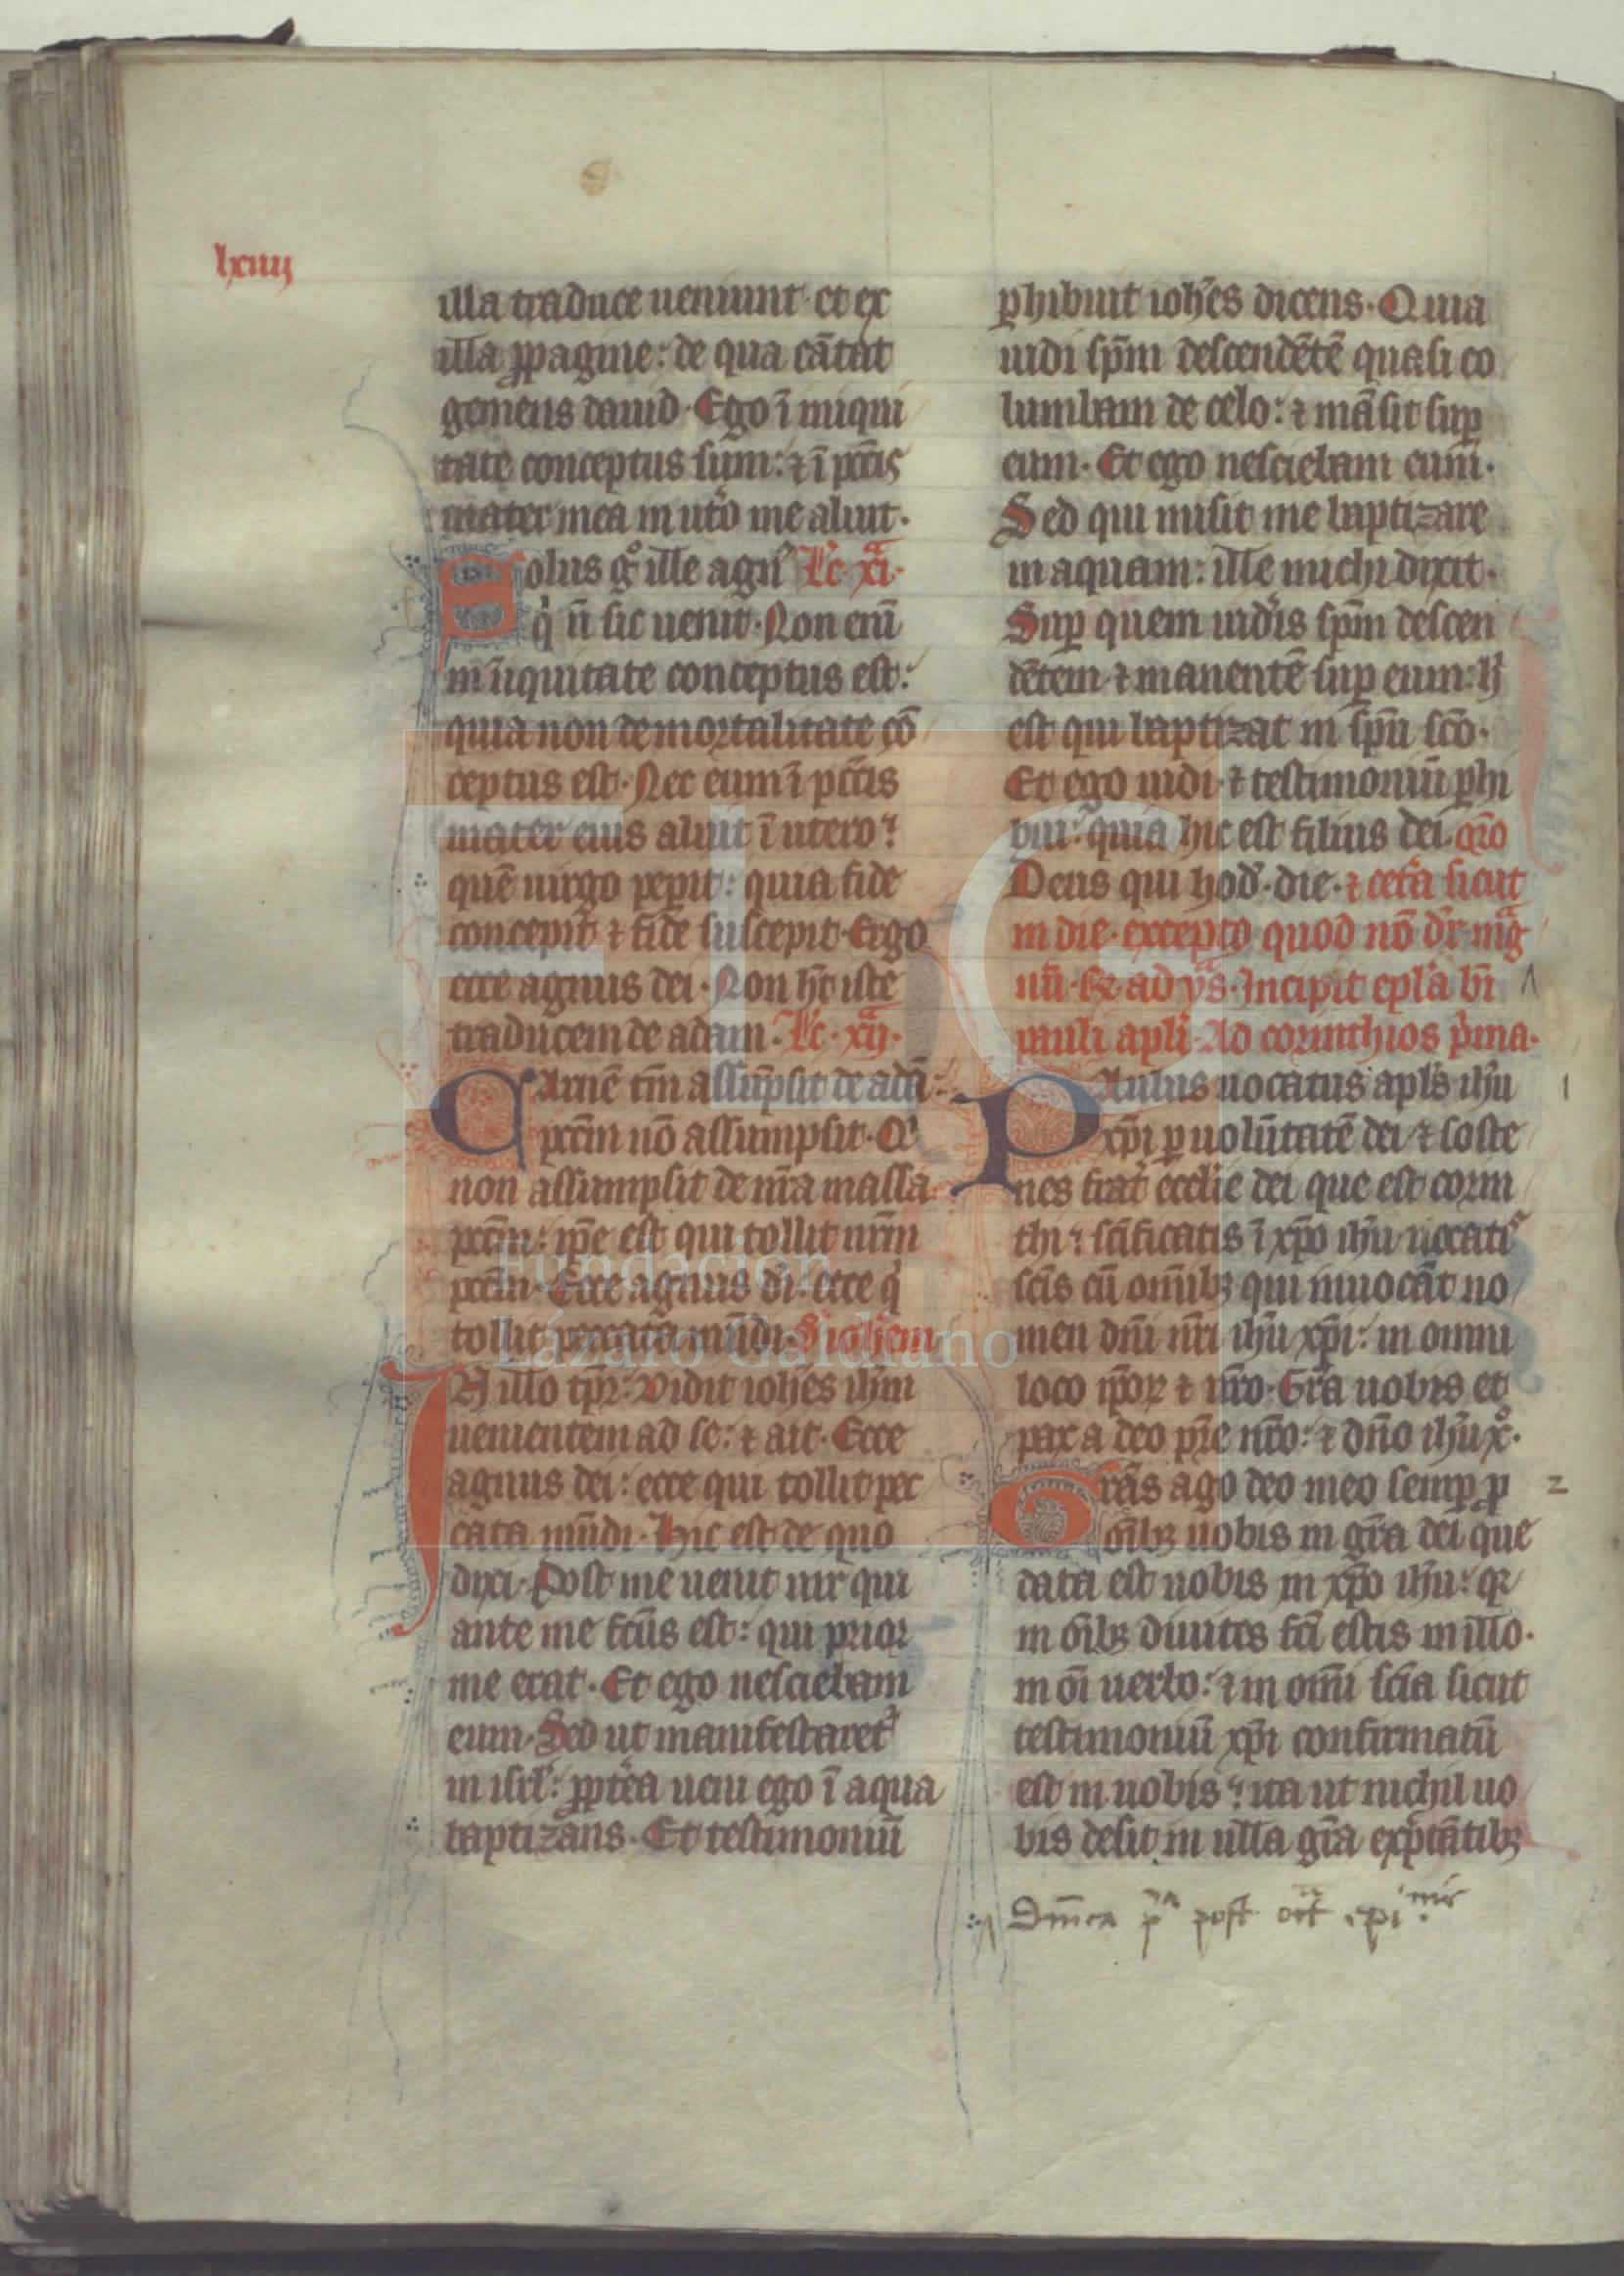 lxiiij
illa traduce ueniunt. et ex
illa ꝓpagine: de qua cātat
gemens dauid. Ego ī iniqui
tate conceptus sum: ⁊ ī pctīs
mater mea in utō me aluit.
Solus gͦ ille agnꝰ Lc̄. xiᵃ.
qͥ n̄ sic uenit. Non enī
in iniquitate conceptus est:
quia non de mortalitate cō
ceptus est. Nec eum ī pctīs
mater eius aluit ī utero:
quē uirgo peperit: quia fide
concepit ⁊ fide suscepit. Ergo
ecce agnus dei. Non hēt iste
traducem de adam. Lc̄. xijᵃ.
Carnē tm̄ assūpsit de adā:
pctm̄ nō assumpsit. Qͥ
non assumpsit de nr̄a massa
pctm̄: ip̄e est qui tollit nr̄m
pctm̄. Ecce agnus di. ecce qͥ
tollit peccata mūdi. S. ioh̄em
IN illo tp̄r: Vidit ioh̄es ih̄m
uenientem ad se: ⁊ ait. Ecce
agnus dei: ecce qui tollit pec
cata mūdi. Hic est de quo
dixi. Post me uenit uir qui
ante me fcūs est: qui prior
me erat. Et ego nesciebam
eum. Sed ut manifestaretᷣ
in isrl̄: ꝓpterea ueni ego ī aqua
baptizans. Et testimoniū
ꝑhibuit ioh̄es dicens. Quia
uidi sp̄m descendētē quasi co
lumbam de celo: ⁊ māsit suꝑ
eum. Et ego nesciebam eum.
Sed qui misit me baptizare
in aquam: ille michi dixit.
Suꝑ quem uidͥis sp̄m descen
dētem ⁊ manentē suꝑ eum: hͥ
est qui baptizat in sp̄u scō.
Et ego uidi. ⁊ testimoniū ꝑhi
bui: quia hic est filius dei. orō
Deus qui hod̄. die. ⁊ cetͣa sicut
in die. excepto quod nō dr̄ mͣg
ad yͣs. Incipit epl̄a bī
pauli apli. Ad corinthios pͥma.
PAulus uocatus apl̄s ih̄u
xp̄i ꝑ uolūtatē dei ⁊ soste
nes frat̄ ecclīe dei que est corin
thi: scīficatis ī xp̄o ih̄u uocatis
scīs cū omībꝫ qui inuocāt no
men dn̄i nr̄i ih̄u xp̄i: in omni
loco ip̄oꝝ ⁊ nr̄o. Grā uobis et
pax a deo pr̄e nr̄o: ⁊ dn̄o ih̄u xͦ.
Grās ago deo meo semꝑ ꝓ
oībꝫ uobis in grā dei que
data est uobis in xp̄o ih̄u: qꝛ
in oībꝫ diuites fcī estis in illo.
in oī uerbo: ⁊ in omī scīa sicut
testimoniū xp̄i confirmatū
est in uobis: ita ut nichil uo
bis desit in ulla grā expectātibꝫ
1
2
Dn̄ica pᵃ post oct̄ epi